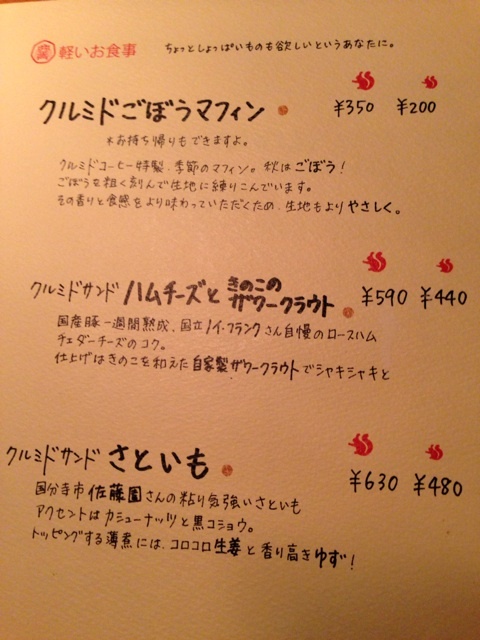 軽いお食事 ちょっとしょっぱいものも欲しいというあなたに。
クルミドごぼうマフィン ¥350 ¥200
*お持ち帰りもできますよ。
クルミドコーヒー特製、季節のマフィン。秋はごぼう!
ごぼうを粗く刻んで生地に練りこんでいます。
その香りと食感をより味わっていただくため、生地もよりやさしく。
クルミドサンド ハムチーズときのこのザワークラウト ¥590 ¥440
国産豚一週間熟成、国立ノイ・フランクさん自慢のロースハム
チェダーチーズのコク。
仕上げはきのこを和えた自家製ザワークラウトでシャキシャキと
クルミドサンド さといも ¥630 ¥480
国分寺市 佐藤園さんの粘り気強いさといも
アクセントはカシューナッツと黒コショウ。
トッピングする薄煮には、コロコロ生姜と香り高きゆず!